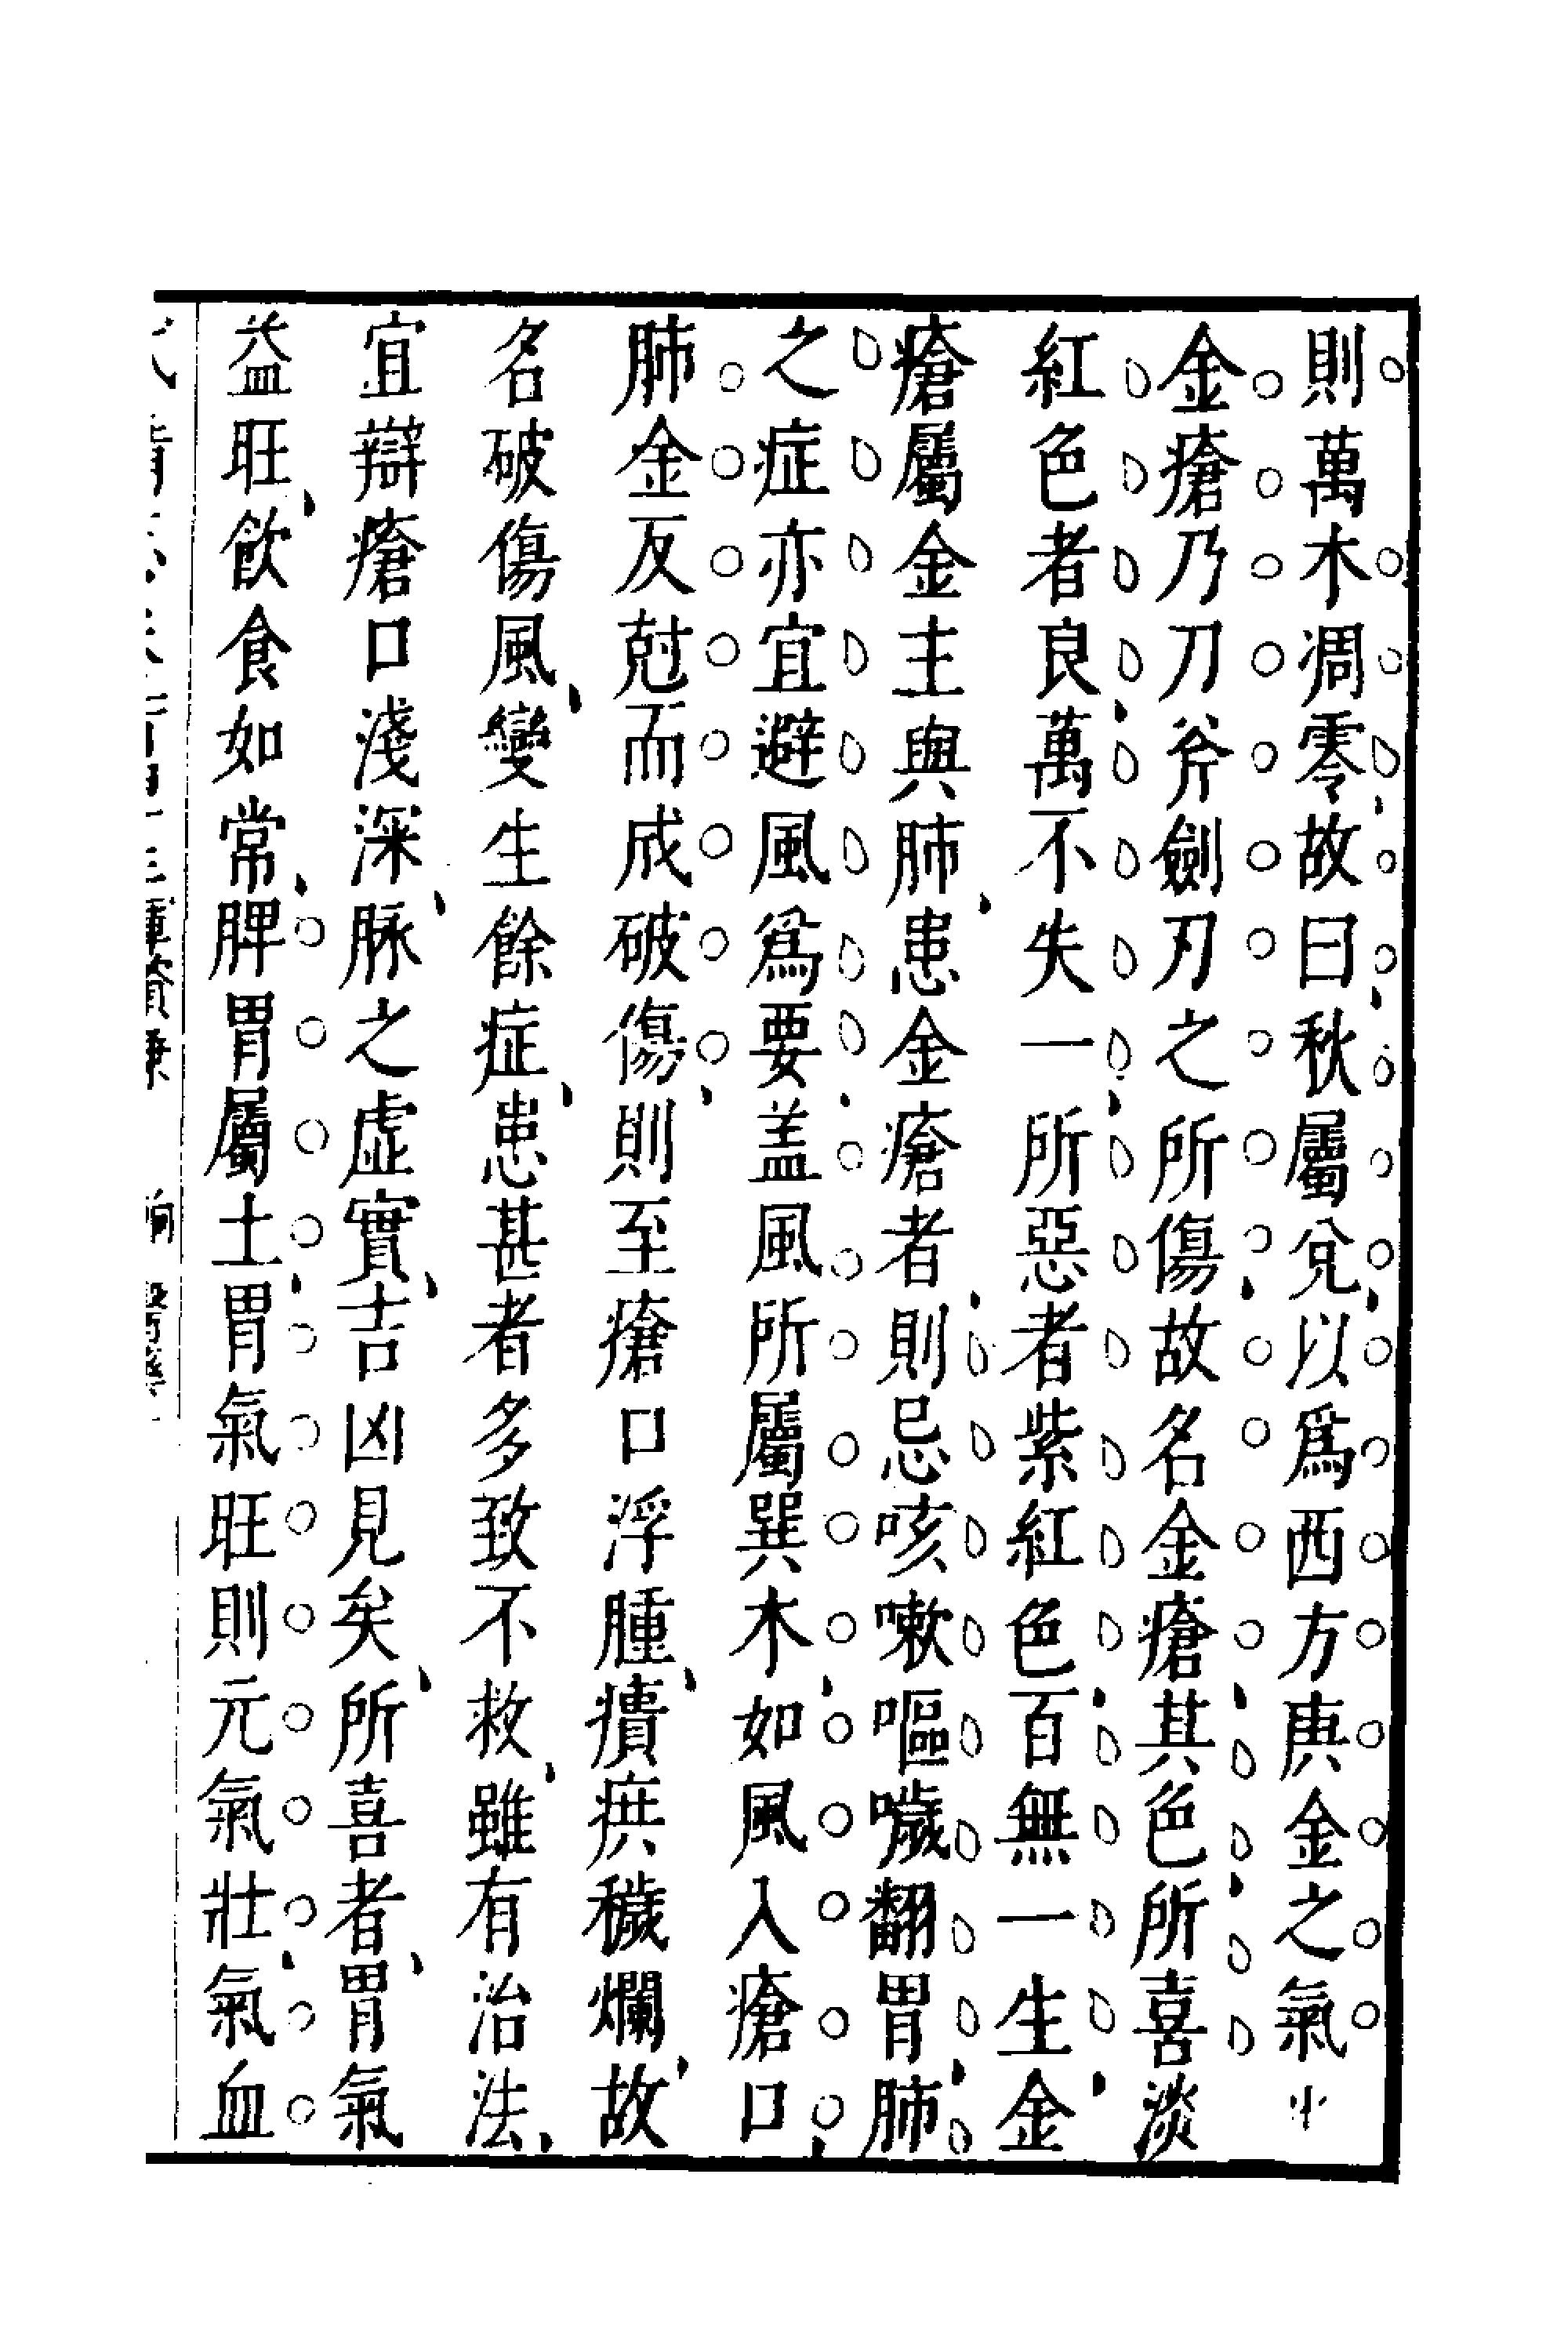 則萬木凋零故曰秋屬兌以爲西方庚金之氣
金瘡乃刀斧劍刃之所傷故名金瘡其色所喜淡
紅色者良萬不失一所惡者紫紅色百無一生金
瘡屬金主與肺患金瘡者則忌咳嗽嘔噦翻胃肺
之症亦宜避風爲要盖風所屬巽木如風入瘡口
肺金反尅而成破傷則至瘡口浮腫癀㾮穢爛故
名破傷風變生餘症患甚者多致不救雖有治法
宜辯瘡口淺深脉之虛實吉凶見矣所喜者胃氣
益旺飲食如常脾胃屬土胃氣旺則元氣壯氣血